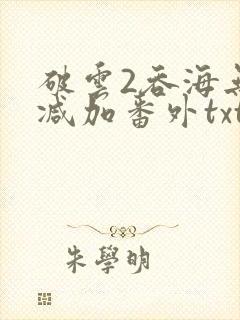 破雲2吞海無
减加番外txt
朱學明